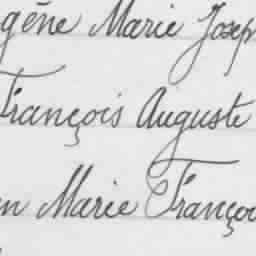 gène Marie Josep
François Auguste
en Marie Françoi